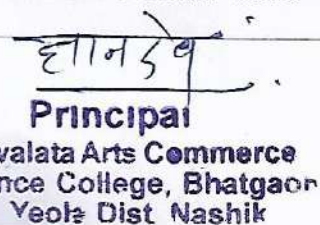 ज्ञानदेव
Principal
valata Arts Commerce
nce College, Bhatgaon
Yeola Dist Nashik